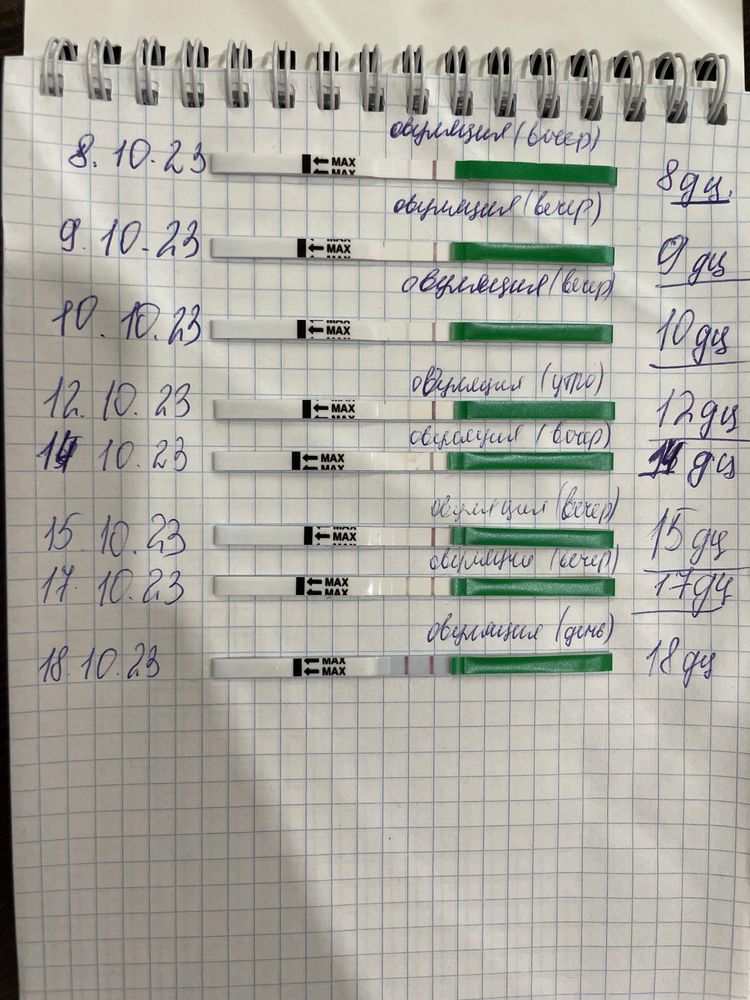 овуляция (вечер)
8.10.23 ← MAX ← MAX 8дц.
овуляция (вечер)
9.10.23 MAX ← MAX MAX 9 дц
овуляция (вечер)
10.10.23 MAX ← MAX MAX 10 дц
овуляция (утро)
12.10.23 MAX ← MAX MAX 12дц
овуляция (вечер)
14 10.23 ← MAX ← MAX 14 дц
овуляция (вечер)
15 10.23 MAX ← MAX MAX 15дц
овуляция (вечер)
17.10.23 ← MAX ← MAX 17дц
овуляция (день)
18.10.23 ← MAX ← MAX 18дц